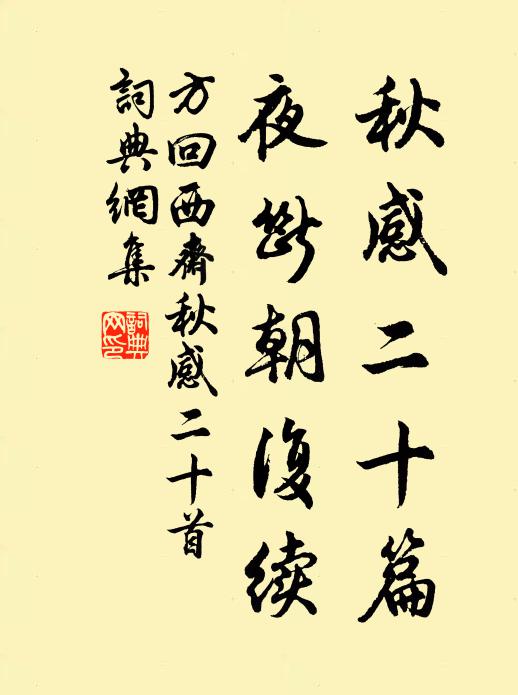 秋感二十篇
夜断朝復续
方回西齋秋感二十首
詞典網集
詞典網印